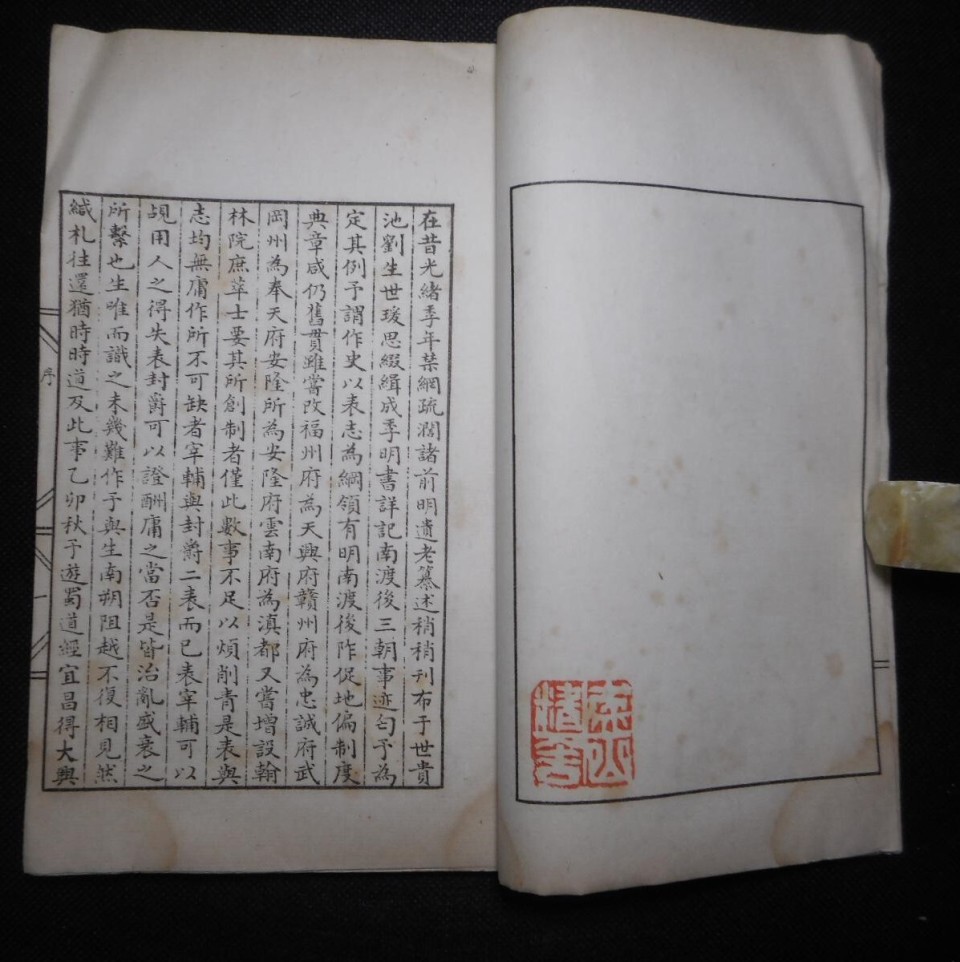 在昔光緒季年禁網疏濶諸前明遺老纂述稍稍刊布于世貴
池劉生世珩思綴緝成季明書詳記南渡後三朝事迹匄予為
定其例予謂作史以表志為綱領有明南渡後阼促地偏制度
典章咸仍舊貫雖嘗改福州府為天興府贛州府為忠誠府武
岡州為奉天府安隆所為安隆府雲南府為滇都又嘗增設翰
林院庶萃士要其所創制者僅此數事不足以煩削青是表與
志均無庸作所不可缺者宰輔與封爵二表而已表宰輔可以
覘用人之得失表封爵可以證酬庸之當否是皆治亂盛衰之
所繫也生唯而識之未幾難作予與生南朔阻越不復相見然
緘札往還猶時時道及此事乙卯秋予遊蜀道經宜昌得大興
序